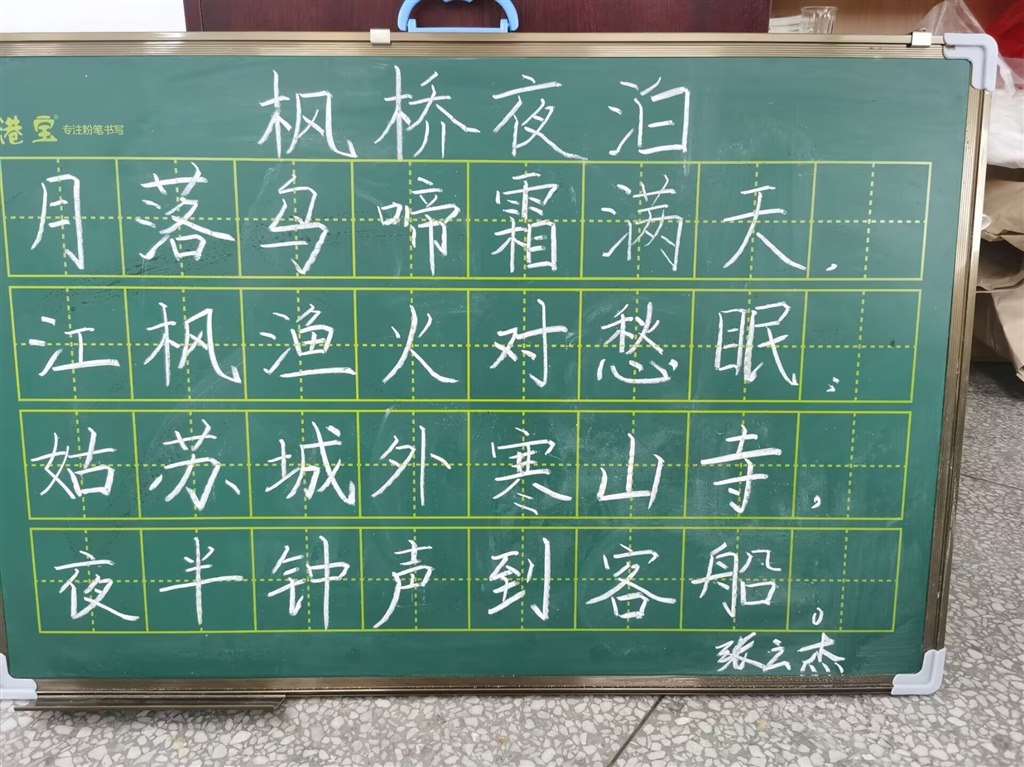 枫桥夜泊
港宝 专注粉笔书写
月落乌啼霜满天,
江枫渔火对愁眠;
姑苏城外寒山寺,
夜半钟声到客船。
张云杰